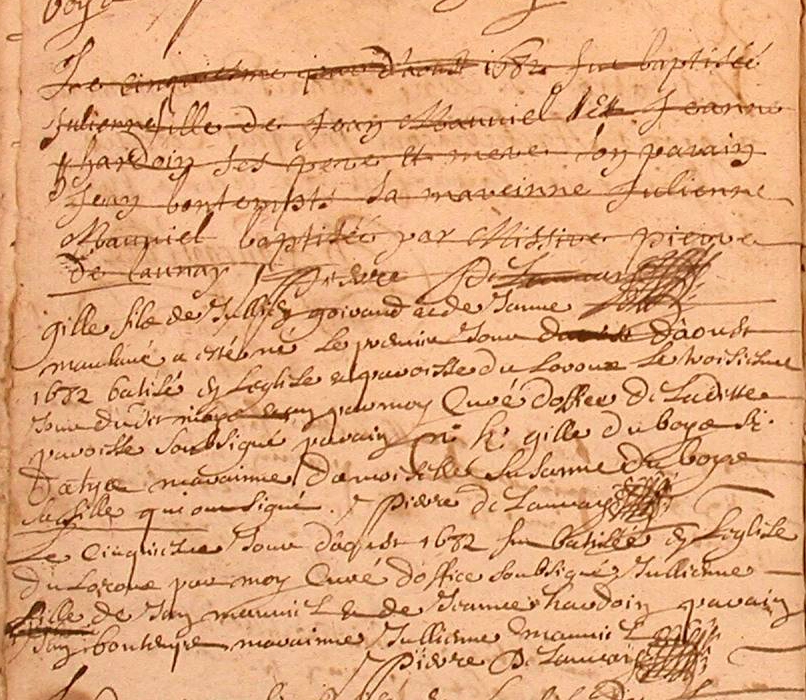 Le cinquiesme jour d'aoust 1682 fut baptisée
Julienne fille de Jean Mauniel Et Jeanne
hardoin ses pere et mere son parain
Jean bontemps sa mareinne Julienne
Mauniel baptisée par Missire pierre
de launay Pierre De Launay
gille filz de Jullien goirand et de Janne
a esté né Le premier Jour d'aoust
1682 batisé en Leglise et paroisse du Loroux Le troisiesme
Jour dudit par moy Curé doffice de Laditte
paroisse soubsigné parain gille du boys
marainne damoiselle Susanne du boys
sa fille qui ont signé. Pierre de Launay
Le Cinquiesme Jour daoust 1682 fut batisée en Leglise
du Loroux par moy Curé d'office soubsigné Jullienne
fille de Jan mauniel et de Jeanne hardoin parain
Jan bontemps marainne Jullienne mauniel
Pierre De Launay